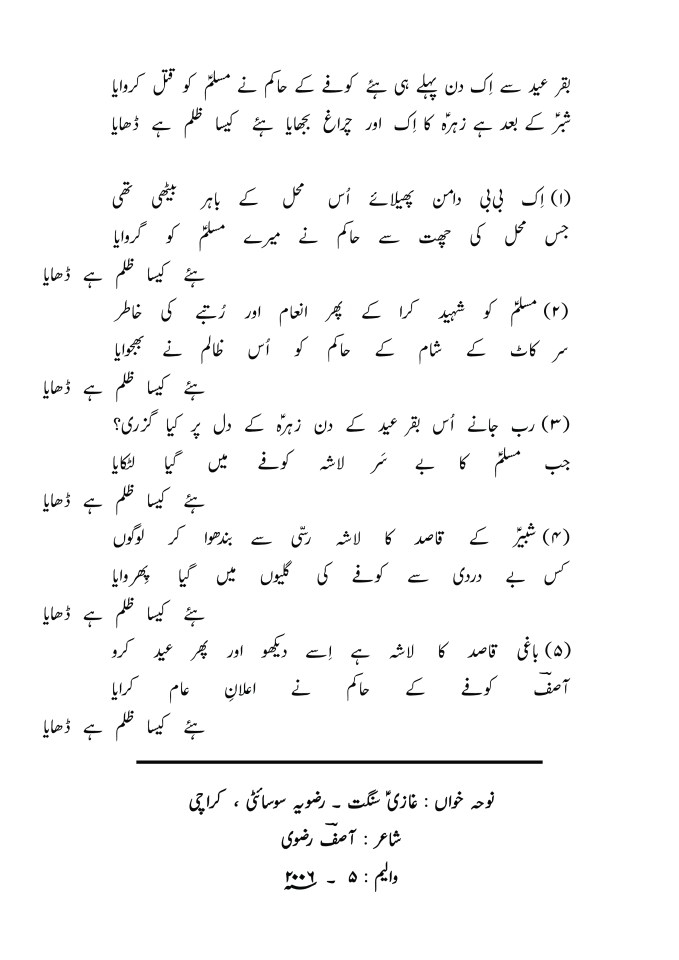 بقر عید سے اِک دن پہلے ہی ہئے کوفے کے حاکم نے مسلمؑ کو قتل کروایا
شبرؑ کے بعد ہے زہرہؑ کا اِک اور چراغ بجھایا ہئے کیسا ظلم ہے ڈھایا
(۱) اِک بی بی دامن پھیلائے اُس محل کے باہر بیٹھی تھی
جس محل کی چھت سے حاکم نے میرے مسلمؑ کو گروایا
ہئے کیسا ظلم ہے ڈھایا
(۲) مسلمؑ کو شہید کرا کے پھر انعام اور رُتبے کی خاطر
سر کاٹ کے شام کے حاکم کو اُس ظالم نے بھجوایا
ہئے کیسا ظلم ہے ڈھایا
(۳) رب جانے اُس بقر عید کے دن زہرہؑ کے دل پر کیا گزری؟
جب مسلمؑ کا بے سَر لاشہ کوفے میں گیا لٹکایا
ہئے کیسا ظلم ہے ڈھایا
(۴) شبیرؑ کے قاصد کا لاشہ رسّی سے بندھوا کر لوگوں
کس بے دردی سے کوفے کی گلیوں میں گیا پِھروایا
ہئے کیسا ظلم ہے ڈھایا
(۵) باغی قاصد کا لاشہ ہے اِسے دیکھو اور پھر عید کرو
آصفؔ کوفے کے حاکم نے اعلانِ عام کرایا
ہئے کیسا ظلم ہے ڈھایا
نوحہ خواں : غازیؑ سنگت ۔ رضویہ سوسائٹی ، کراچی
شاعر : آصفؔ رضوی
والیم : ۵ ۔ ۲۰۰۶